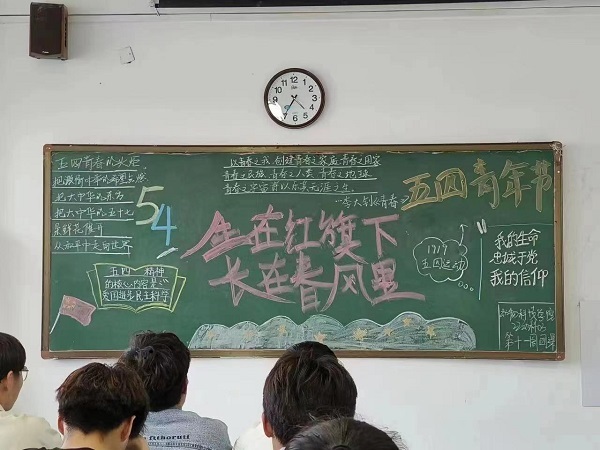 五四青春的火炬
把大中华的东方
把大中华的五十七
从和平中走向世界
54
五四 精神
的核心内容是
爱国进步民主科学
以青春之我 创建青春之家庭 青春之国家
青春之民族 青春之人类 青春之地球
青春之宇宙 资以乐其无涯之生
李大钊《青春》
五四青年节
生在红旗下
长在春风里
1919
五四运动
我的生命
忠诚于党
我的信仰
第十一团支